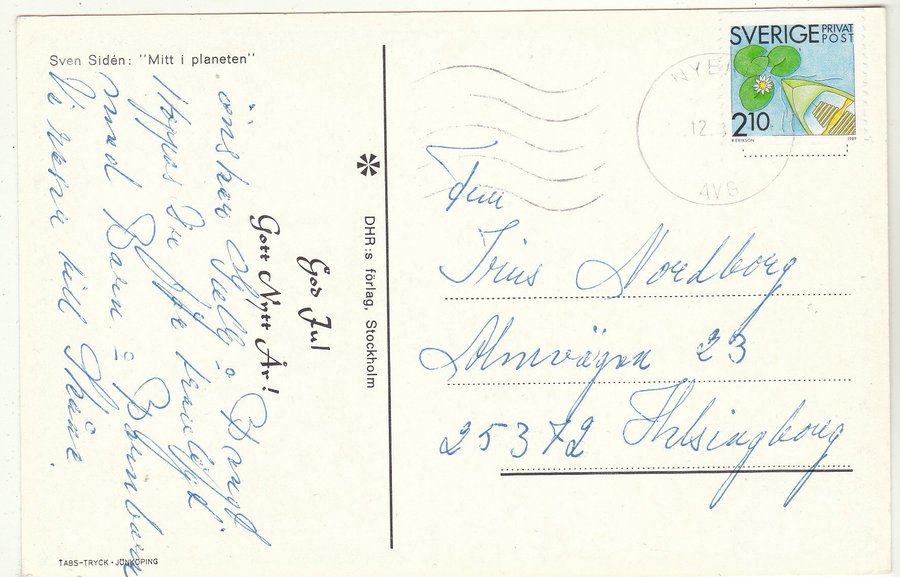 Sven Sidén: "Mitt i planeten"
God Jul
Gott Nytt År!
önskar Sally o Bengt
Hoppas Du
med Barn o Barnbarn
Vi resa till Skåne.
DHR:s förlag, Stockholm
TABS-TRYCK · JÖNKÖPING
SVERIGE PRIVAT
POST
2.10
R.ERIKSON 1989
NYB
12.
AVG
Fru
Iris Nordborg
Almvägen 23
25372 Helsingborg